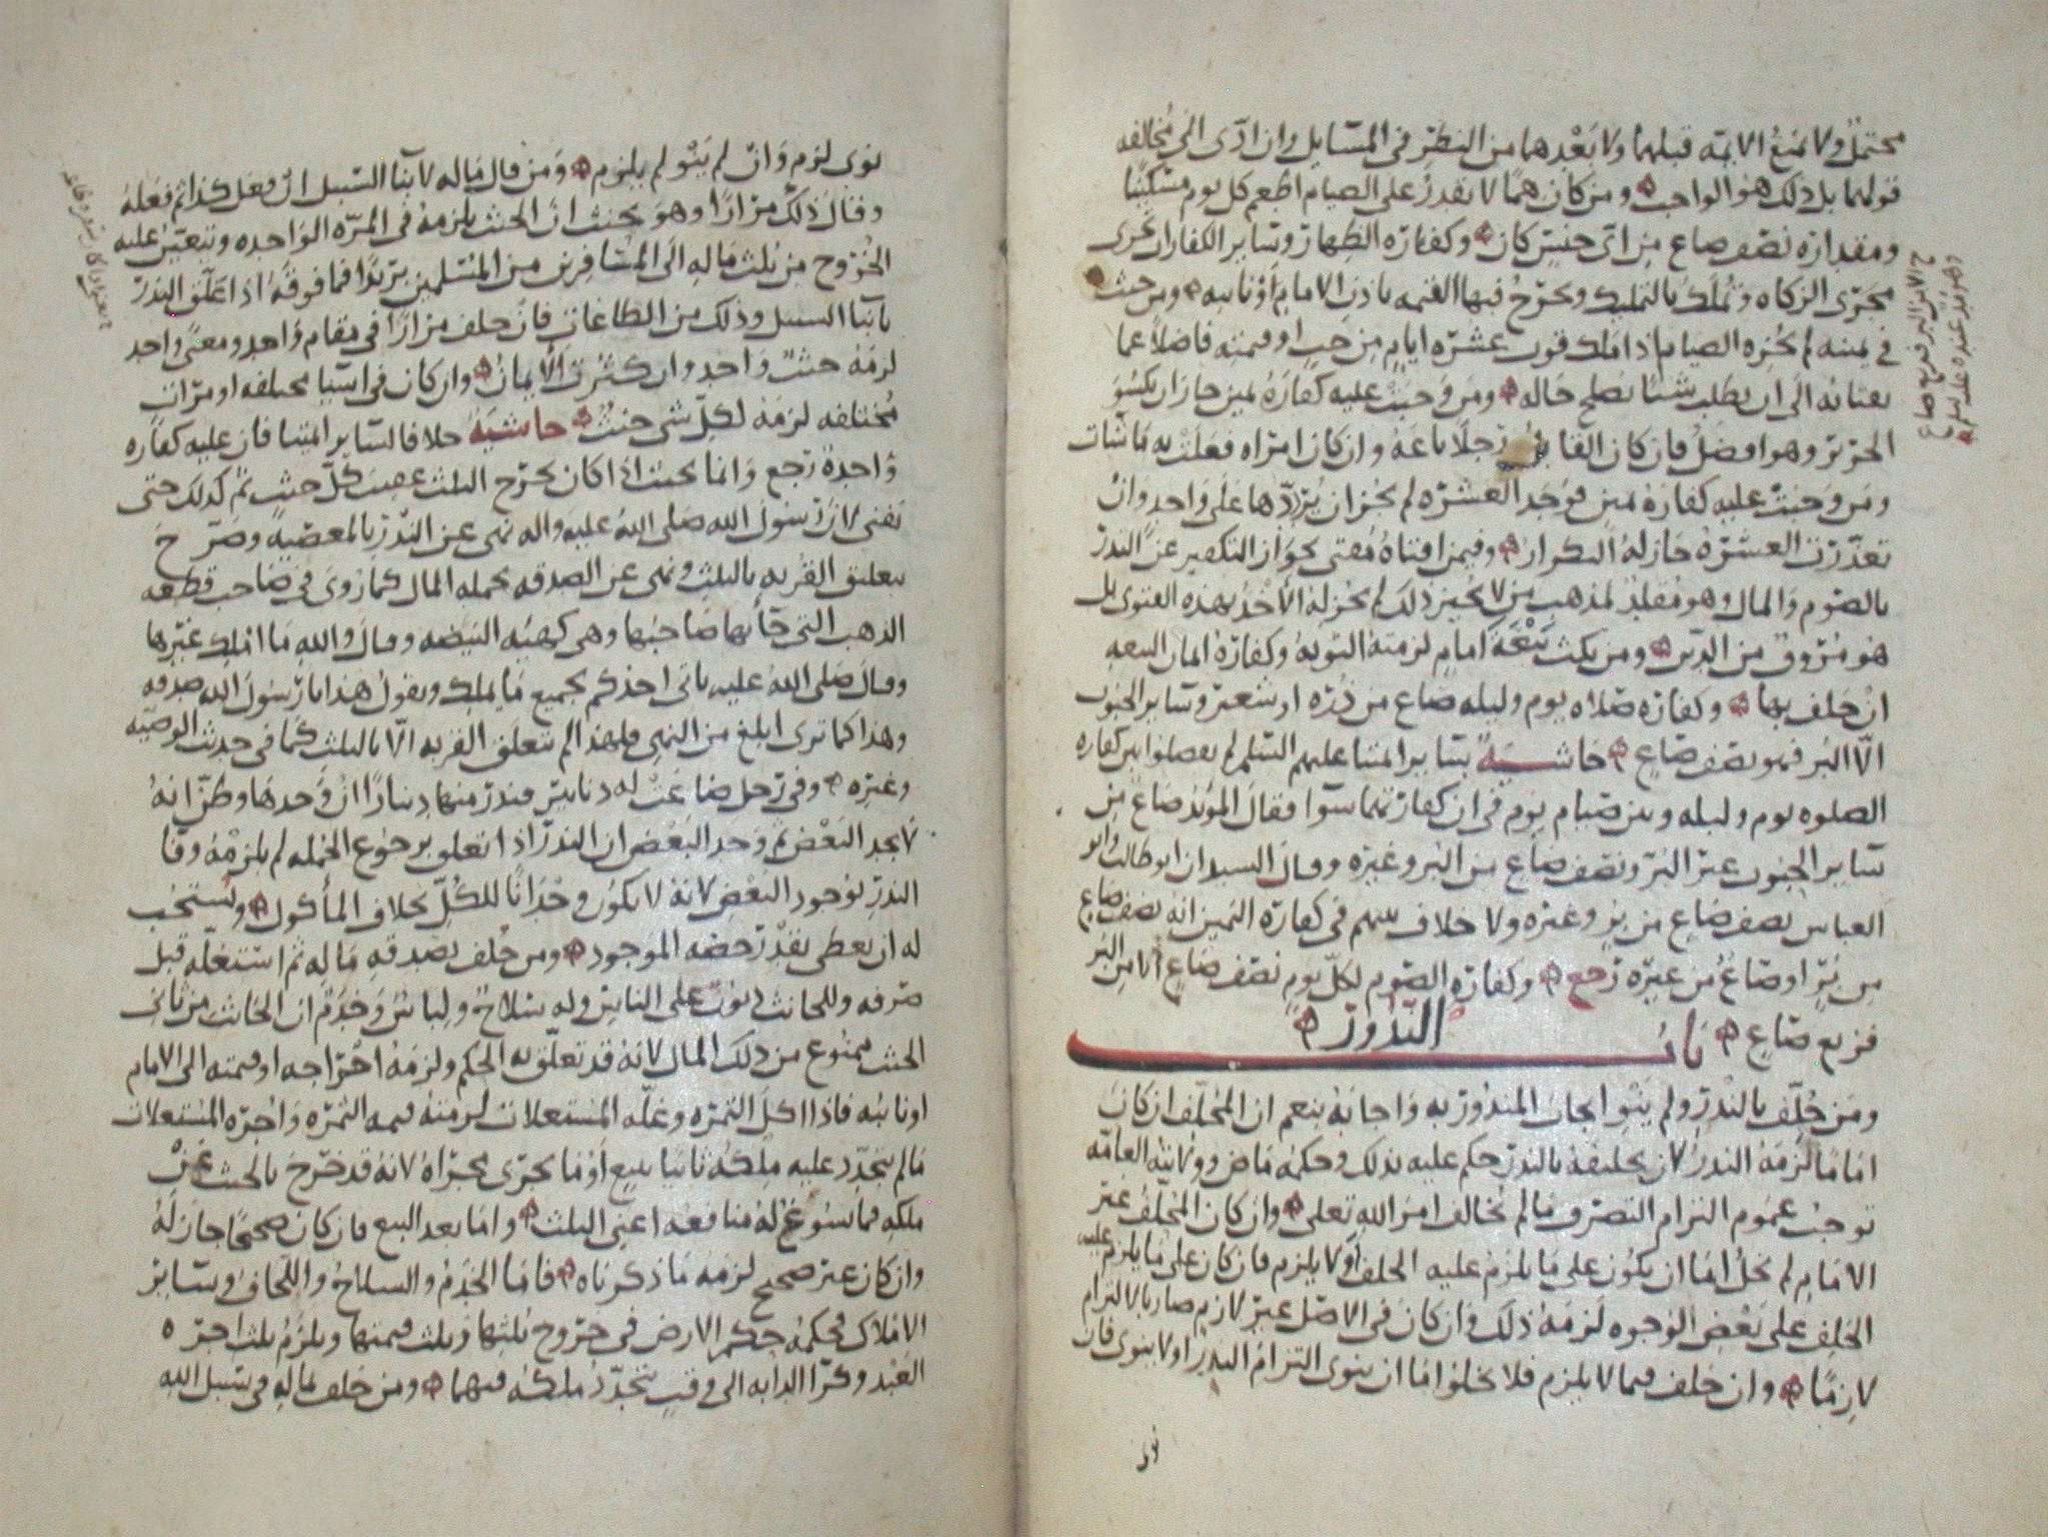 محتمل ولا تمنع الائمه قبلهما ولا بعدهما من النظر في المسايل وان ادى الى مخالفه
قولهما بل ذلك هو الواجب ومن كان همّا لا يقدر على الصيام اطعم كل يوم مسكينا
ومقداره نصف صاع من اى جنس كان وكفاره الظهار وساير الكفارات تجرى
مجرى الزكاه وتملك بالتمليك وتخرج فيها القيمه باذن الامام او نايبه ومن حنث
في يمينه لم يجزه الصيام اذا ملك قوت عشره ايام من حب او قيمته فاضلا عما
يعتاته الى ان يطلب شيا يصلح حاله ومن وجبت عليه كفاره يمين جاز ان يكسو
الحرير وهو افضل فان كان القابض رجلا باعه وان كان امراه فعلت به ما شات
ومن وجبت عليه كفاره يمين فوجد العشره لم يجز ان يرددها على واحد وان
تعذرت العشره جاز له التكرار وفيمن افتاه مفتى بجواز التكفير عن النذر
بالصوم والمال وهو مقلد لمذهب من لا يجيز ذلك لم يجز له الاخذ بهذه الفتوى بل
هو مروق من الدين ومن نكث بيعه امام لزمته التوبه وكفاره ايمان البيعه
ان حلف بها وكفاره صلاه يوم وليله صاع من ذره او شعير وساير الحبوب
الا البر فهو نصف صاع حاشيه ساير ايمتنا عليهم السلم لم يفصلوا بين كفاره
الصلوه يوم وليله وبين صيام يوم في ان كفارتهما سوا فقال المويد صاع من
ساير الحبوب غير البر ونصف صاع من البر وغيره وقال السيدان ابو طالب وابو
العباس نصف صاع من بر وغيره ولا خلاف بينهم في كفاره اليمين انه نصف صاع
من بر او صاع من غيره رجع وكفاره الصوم لكل يوم نصف صاع الا من البر
فربع صاع باب النذور
ومن حلف بالنذر ولم ينو ايجاب المنذور به واجابه بنعم ان المحلف ان كان
اماما لزمه النذر لان تحليفه بالنذر حكم عليه بذلك وحكمه ماض وولايته العامه
توجب عموم التزام التصرف ما لم يخالف امر الله تعلى وان كان المحلف غير
الامام لم يخل اما ان يكون على ما يلزم عليه الحلف او لا يلزم فان كان على ما يلزم عليه
الحلف على بعض الوجوه لزمه ذلك وان كان في الاصل غير لازم صار بالالتزام
لازما وان حلف فيما لا يلزم فلا يخلو اما ان ينوى التزام النذر او لا ينوى فان
نوى
نوى لزم وان لم ينو لم يلزم ومن قال ماله لابنا السبيل ان فعل كذا ثم فعله
وقال ذلك مرارا وهو يحنث ان الحنث يلزمه في المره الواحده ويتعين عليه
الخروج من ثلث ماله الى المسافرين من المسلمين بريدا فما فوقه اذا علق النذر
بابنا السبيل وذلك من الطاعات فان حلف مرارا في مقام واحد ومعنى واحد
لزمه حنث واحد وان كثرت الايمان وان كان في اشيا مختلفه او مرات
مختلفه لزمه لكل شى حنث حاشيه خلافا لساير ايمتنا فان عليه كفاره
واحده رجع وانما يحنث اذا كان يخرج الثلث عقيب كل حنث ثم كذلك حتى
يفنى لان رسول الله صلى الله عليه واله نهى عن النذر بالمعصيه وصرح
بتعليق القربه بالثلث ونهى عن الصدقه بجمله المال كما روى في صاحب قطعه
الذهب التى جا بها صاحبها وهى كهيئه البيضه وقال والله ما املك غيرها
وقال صلى الله عليه ياتى احدكم بجميع ما يملك ويقول هذا يا رسول الله صدقه
وهذا كما ترى ابلغ من النهى فلهذا لم تتعلق القربه الا بالثلث كما في حديث الوصيه
وغيره وفي رجل ضاعت له دنانير فنذر منها دينارا ان وجدها وظن انه
لا يجد البعض ثم وجد البعض ان النذر اذا تعلق برجوع الجمله لم يلزمه وفا
النذر بوجود البعض لانه لا يكون وجدانا للكل بخلاف الماكول ويستحب
له ان يعطى بقدر حصه الموجود ومن حلف بصدقه ماله ثم استغله قبل
صرفه وللحانث ديون على الناس وله سلاح ولباس وخدم ان الحانث من ثانى
الحنث ممنوع من ذلك المال لانه قد تعلق به الحكم ولزمه اخراجه او قيمته الى الامام
او نايبه فاذا اكل الثمره وغله المستغلات لزمته قيمه الثمره واجره المستغلات
ما لم يتجدد عليه ملكه ثانيا ببيع او ما يجرى مجراه لانه قد خرج بالحنث عن
ملكه فما سوغ له منافعه اعنى الثلث واما بعد البيع فان كان صحيحا جاز له
وان كان غير صحيح لزمه ما ذكرناه فاما الخدم والسلاح واللحاف وساير
الاملاك فحكمه حكم الارض في خروج ثلثها وثلث قيمتها ويلزم ثلث اجره
العبد وكرا الدابه الى وقت يتجدد ملكه فيهما ومن حلف بماله في سبيل الله